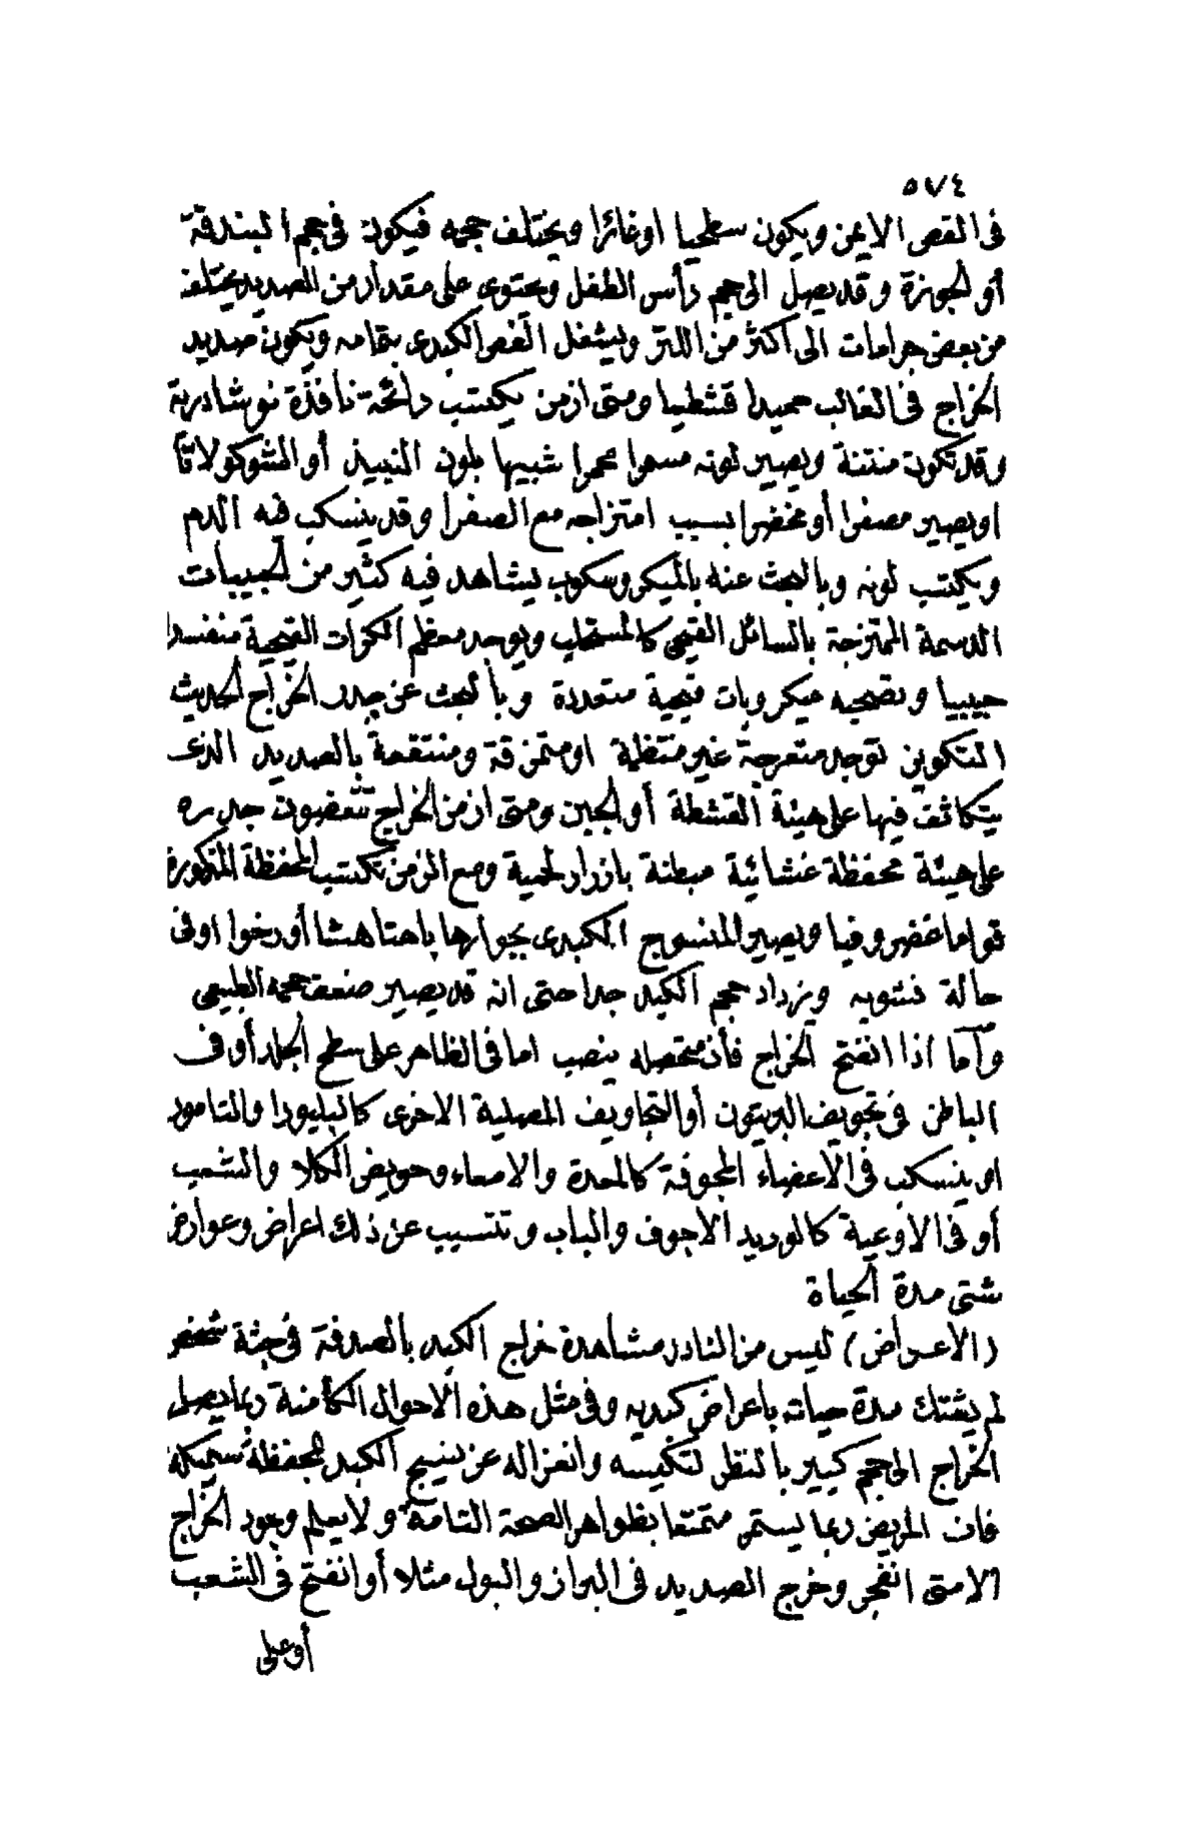 ٥٧٤
فى الفص الايمن ويكون سطحيا اوغائرا ويختلف حجمه فيكون فى حجم البندقة
أو الجوزة وقد يصل الى حجم رأس الطفل ويحتوى على مقدار من الصديد يختلف
من بعض جرامات الى اكثر من اللتر ويشغل الفص الكبدى بتمامه ويكون صديد
الخراج فى الغالب حميدا قشطيا ومتى ازمن يكتسب رائحة نافذة نوشادرية
وقد تكون منتنة ويصير لونه مسمرا محمرا شبيها بلون النبيذ أو الشوكولاتا
اويصير مصفرا أو مخضرا بسبب امتزاجه مع الصفرا وقد ينسكب فيه الدم
ويكتسب لونه وبالبحث عنه بالميكروسكوب يشاهد فيه كثير من الحبيبات
الدسمة الممتزجة بالسائل القيحى كالمستحلب ويوجد معظم الكرات القيحية منفسدا
حبيبيا وتصحبه ميكروبات قيحية متعددة وبالبحث عن جدر الخراج الحديث
التكوين توجد متعرجة غير منتظمة او متمزقة ومنتقعة بالصديد الذى
يتكاثف فيها على هيئة القشطة أو الجبن ومتى ازمن الخراج تتعضون جدره
على هيئة محفظة غشائية مبطنة بازرار لحمية ومع الزمن تكتسب المحفظة المذكورة
قواما غضروفيا ويصير المنسوج الكبدى بجوارها باهتا هشا أو رخوا اوفى
حالة ويزداد حجم الكبد جدا حتى انه قد يصير ضعف حجمه الطبيعى
وأما اذا انفتح الخراج فأن متحصله ينصب اما فى الظاهر على سطح الجلد أو فى
الباطن فى تجويف البريتون أو التجاويف المصلية الاخرى كالبليورا والتامور
او ينسكب فى الأعضاء المجوفة كالمعدة والامعاء وحويض الكلا والشعب
أو فى الاوعية كالوريد الاجوف والباب وتتسبب عن ذلك اعراض وعوارض
شتى مدة الحياة
(الاعراض) ليس من النادر مشاهدة خراج الكبد بالصدفة فى جثة شخص
لم يشتك مدة حياته باعراض كبديه وفى مثل هذه الاحوال الكامنة ربما يصل
الخراج الى حجم كبير بالنظر لتكيسه وانعزاله عن نسيج الكبد بمحفظة سميكة
فان المريض ربما يستمر متمتعا بظواهر الصحة التامة ولا يعلم وجود الخراج
الا متى انفجر وخرج الصديد فى البراز والبول مثلا أو انفتح فى الشعب
أو على